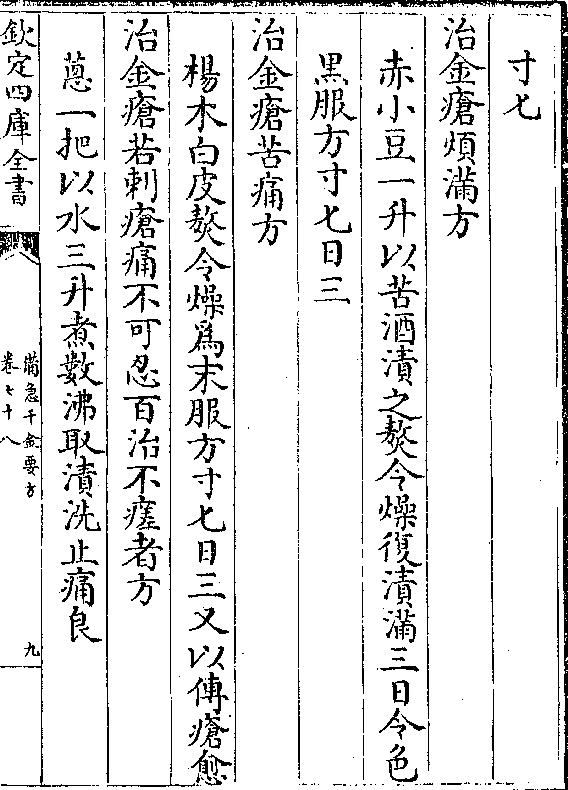 寸匕
治金瘡煩滿方
赤小豆一升以苦酒漬之熬令燥復漬滿三日令色
黒服方寸匕日三
治金瘡苦痛方
楊木白皮熬令燥爲末服方寸匕日三又以傅瘡愈
治金瘡若刺瘡痛不可忍百治不瘥者方
蔥一把以水三升煮數沸取漬洗止痛良
欽定四庫全書
備急千金要方
卷七十八
九